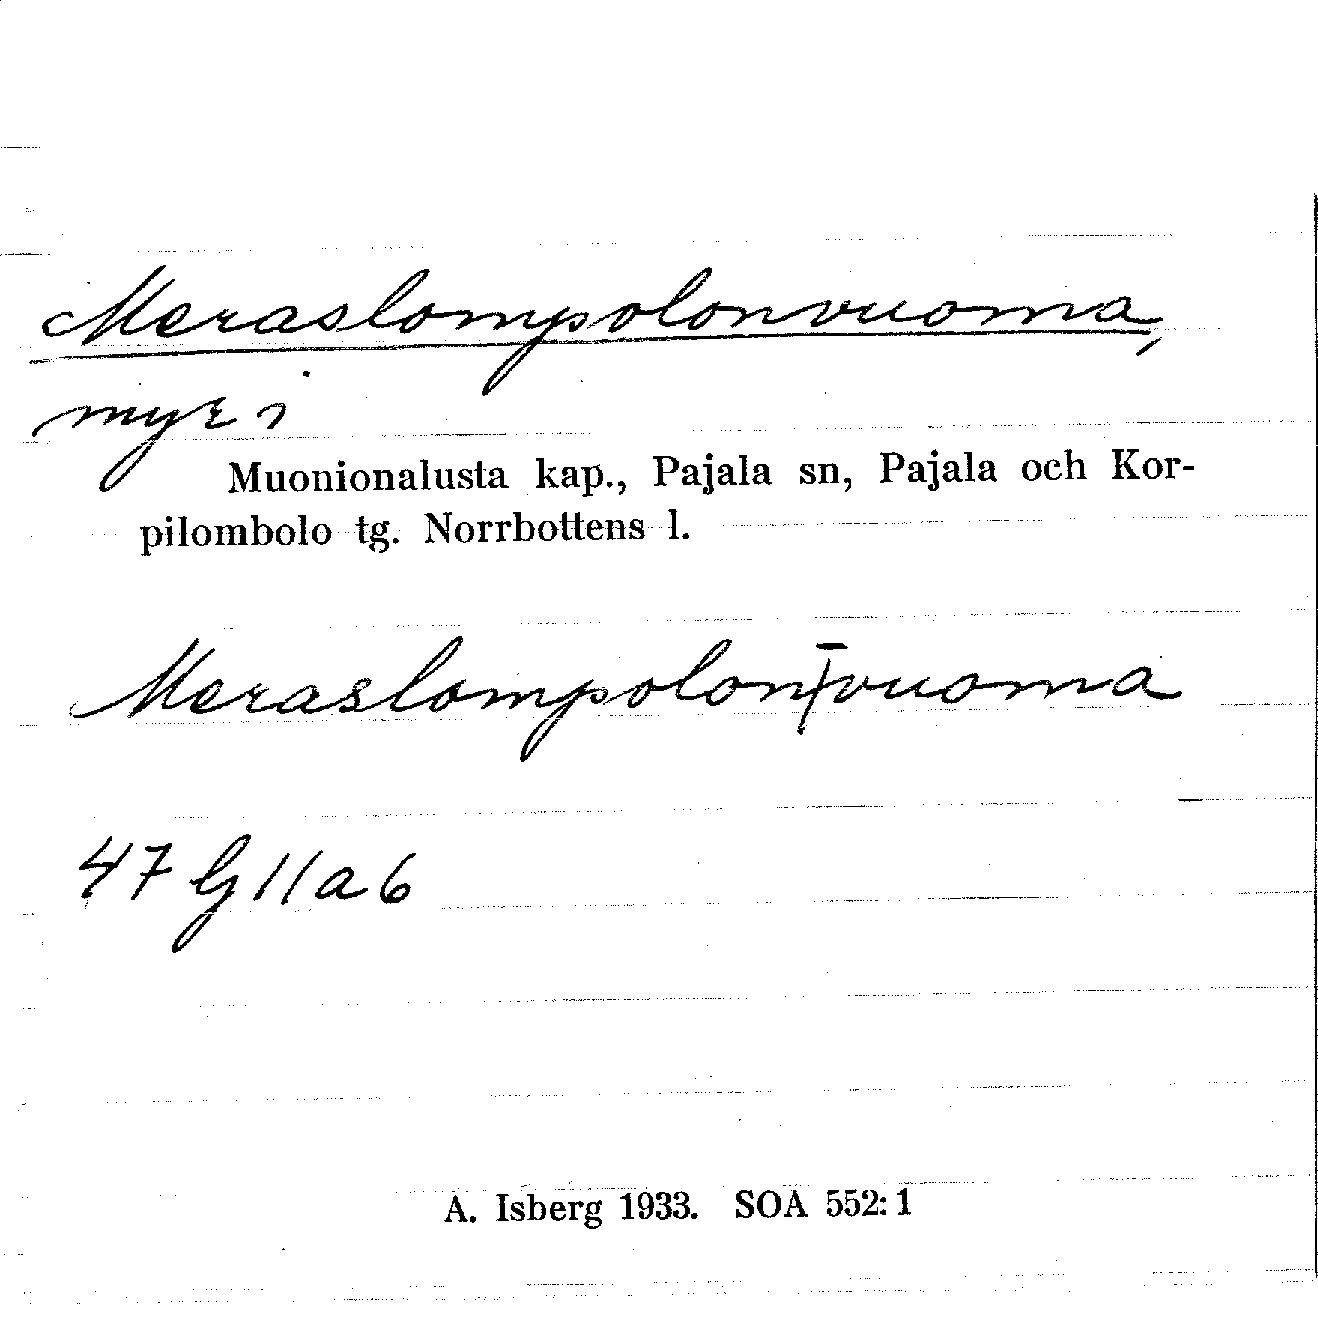 Meraslompolonvuoma,
myr i
Muonionalusta kap., Pajala sn, Pajala och Kor-
pilombolo tg. Norrbottens l.
Meraslompolon-vuoma
47 G 11a6
A. Isberg 1933. SOA 552: 1